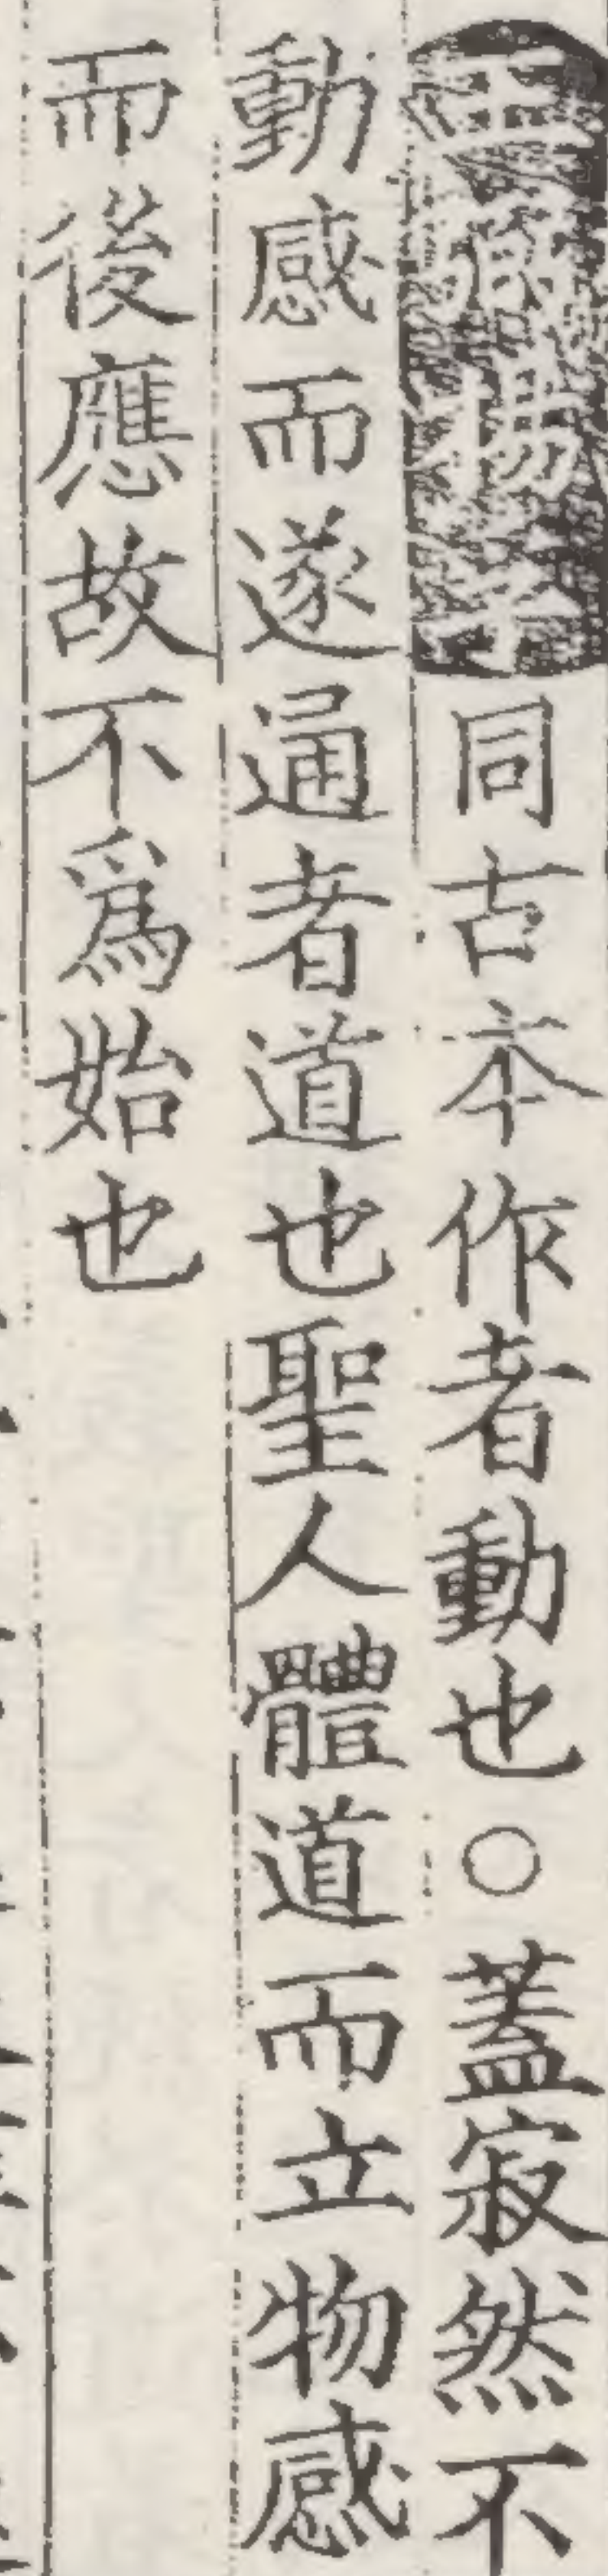 王弼楊孚同古本作者動也○蓋寂然不
動感而遂通者道也聖人體道而立物感
而後應故不爲始也